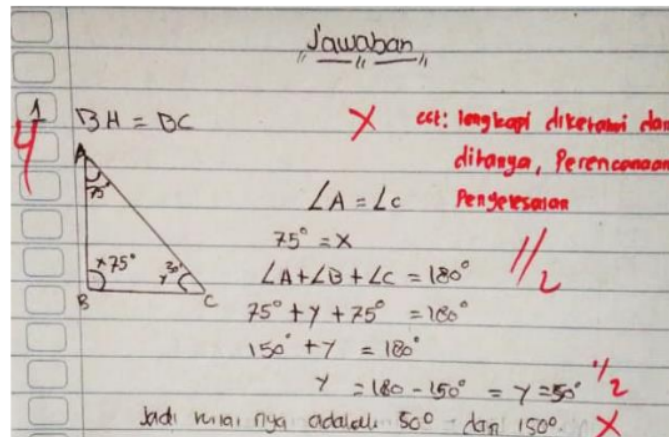 Jawaban
1
4
BH = BC
X cct: lengkapi diketahui dan
ditanya, Perencanaan
Penyelesaian
A
75
x 75°
30°
y
B
C
∠A = ∠C
75° = x
∠A + ∠B + ∠C = 180°
75° + y + 75° = 180°
150° + y = 180°
y = 180 - 150° = y = 50°
1/2
Jadi nilai nya adalah 50° dan 150°. X